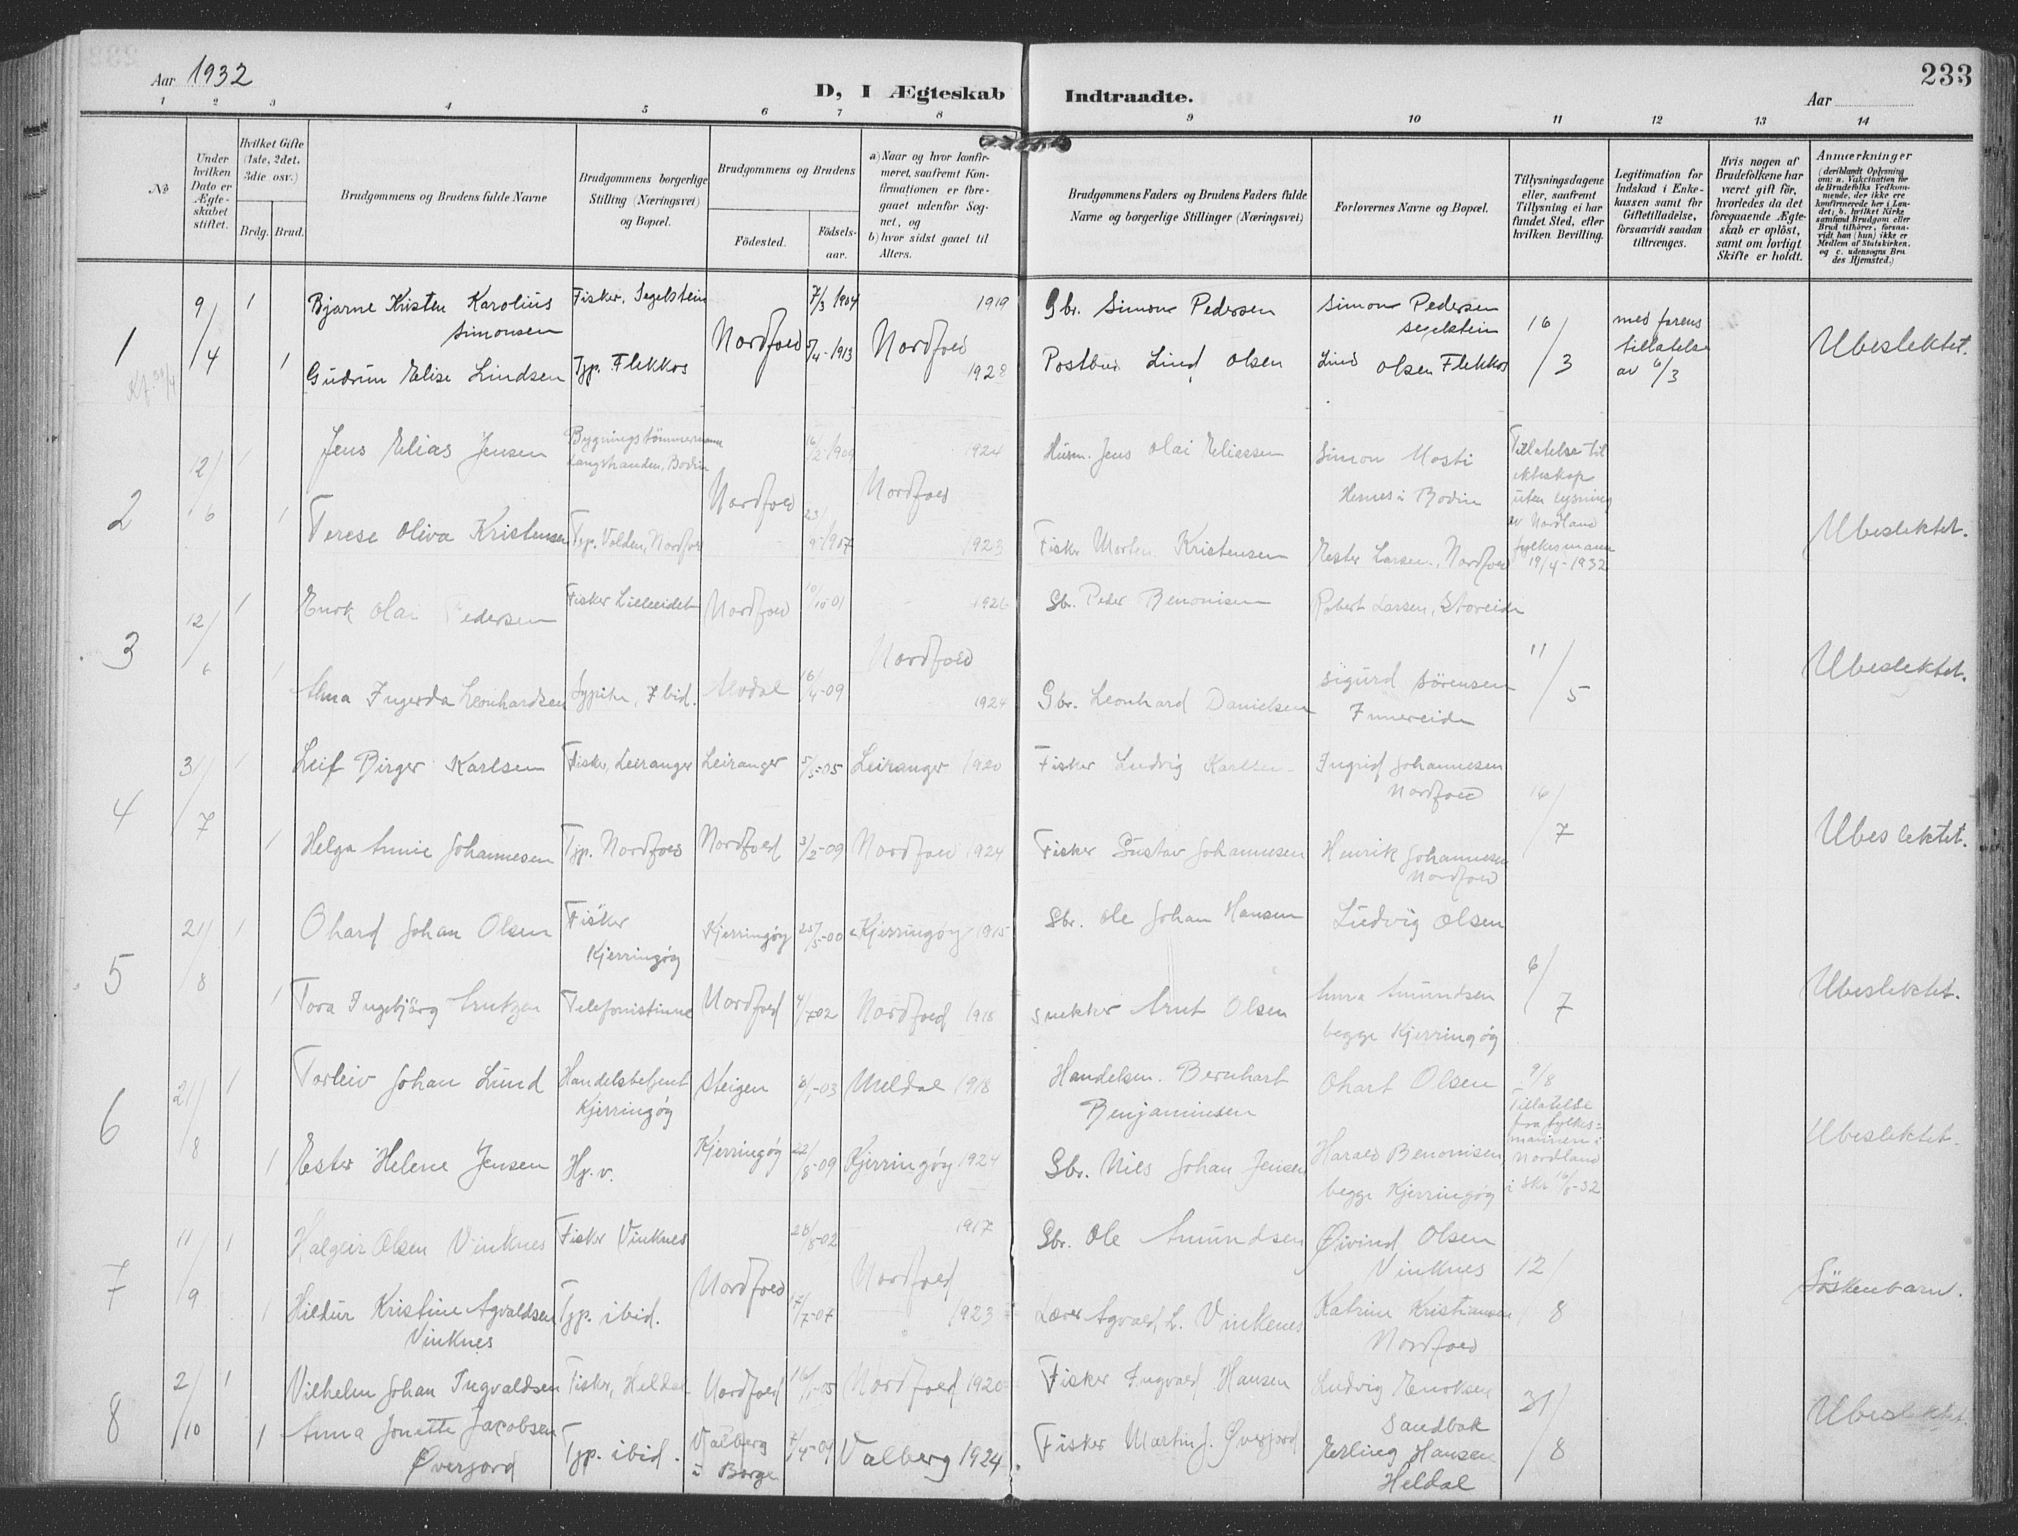 Aar 1932
D, I Ægteskab Indtraadte.
Aar
233
1 2 3 4 5 6 7 8 9 10 11 12 13 14
No
Under hvilken Dato er Ægteskabet stiftet.
Hvilket Gifte (1ste, 2det, 3die osv.)
Brdg. Brud.
Brudgommens og Brudens fulde Navne
Brudgommens borgerlige Stilling (Næringsvei) og Bopæl.
Brudgommens og Brudens
Fødested. Fødselsaar.
a) Naar og hvor konfirmeret, saafremt Konfirmationen er foregaaet udenfor Sognet, og
b) hvor sidst gaaet til Alters.
Brudgommens Faders og Brudens Faders fulde Navne og borgerlige Stillinger (Næringsvei)
Forlovernes Navne og Bopæl.
Tillysningsdagene eller, saafremt Tillysning ei har fundet Sted, efter hvilken Bevilling.
Legitimation for Indskud i Enkekassen samt for Giftetilladelse, forsaavidt saadan tiltrænges.
Hvis nogen af Brudefolkene har været gift før, hvorledes da det foregaaende Ægteskab er opløst, samt om lovligt Skifte er holdt.
Anmærkninger
(deriblandt Oplysning om: a. Vaccination for de Brudefolks Vedkommende, der ikke ere konfirmerede her i Landet; b. hvilket Kirkesamfund Brudgom eller Brud tilhører, forsaavidt han (hun) ikke er Medlem af Statskirken, og c. udensogns Brudes Hjemsted.)
1 9/4 1 Bjarne Kristen Karolius Simonsen Fisker, Segelstein Nordfold 7/3 1904 Nordfold 1919 Gbr. Simon Pedersen Simon Pedersen Segelstein 16/3 med farens tillatelse av 6/3 Ubeslektet.
1 Gudrun Elise Lindsen Typ. Flekkos 5/4-1913 1928 Postbud Lind Olsen Lind Olsen Flekkos
2 12/6 1 Jens Elias Jensen Bygningstømmermann Langstranden, Bodin Nordfold 16/2-1909 Nordfold 1924 Husm. Jens Olai Eliassen Simon Mosti Hernes i Bodin Tillatelse til ekteskap uten lysning av Nordland fylkesmann 19/4-1932 Ubeslektet.
1 Terese Oliva Kristensen 1907 1923 Fisker Morten Kristensen Ester Larsen, Nordfold
3 12/6 1 Enok Olai Pedersen Fisker Lilleeidet Nordfold 10/10-01 Nordfold 1926 Sbr. Peder Benonisen Robert Larsen, Storeide 11/5 Ubeslektet.
1 Alma Ingerda Leonhardsen Sypike, Ibid. 16/4-09 1924 Gbr. Leonhard Danielsen Sigurd Sørensen Innereide
4 31/7 1 Leif Birger Karlsen Fisker, Leiranger Leiranger 5/5-05 Leiranger 1920 Fisker Ludvig Karlsen Ingrid Johannesen Nordfold 16/7 Ubeslektet.
1 Helga Annie Johannesen Typ. Nordfold Nordfold 3/2-09 Nordfold 1924 Fisker Gustav Johannesen Henrik Johannesen Nordfold
5 21/8 1 Ohard Johan Olsen Fisker Kjerringøy Kjerringøy 25/5-00 Kjerringøy 1915 Sbr. Ole Johan Hansen Ludvig Olsen 6/7 Ubeslektet.
1 Tora Ingebjørg Arntzen Telefonistinne Nordfold 4/7 02 Nordfold 1918 Snekker Arnt Olsen Anna Amundsen begge Kjerringøy
6 21/8 1 Torleiv Johan Lund Handelsbetjent Kjerringøy Steigen 8/1-03 Meldal 1918 Handelsm. Bernhart Benjaminsen Ohart Olsen 9/8 Tillatelse fra fylkesmannen i Nordland i skr. 16/8-32 Ubeslektet.
1 Ester Helene Jensen Hj. v. Kjerringøy 22/8-09 Kjerringøy 1924 Sbr. Nils Johan Jensen Harald Benonisen begge Kjerringøy
7 11/9 1 Halgeir Olsen Vinknes Fisker Vinknes Nordfold 20/8-02 Nordfold 1917 Sbr. Ole Amundsen Øivind Olsen Vinknes 12/8 Söskenbarn.
1 Hildur Kristine Agvaldsen Vinknes Typ. ibid. 17/7-07 1923 Lærer Agvald L. Vinkenes Katrine Kristiansen Nordfold
8 2/10 1 Vilhelm Johan Ingvaldsen Fisker, Heldal Nordfold 16/1-05 Nordfold 1920 Fisker Ingvald Hansen Ludvig Enoksen Sandbak 31/8 Ubeslektet.
1 Anna Jonette Jacobsen Øverjord Typ. ibid. Valberg i Borge 7/4-09 Valberg 1924. Fisker Martin J. Øverjord Erling Hansen Heldal